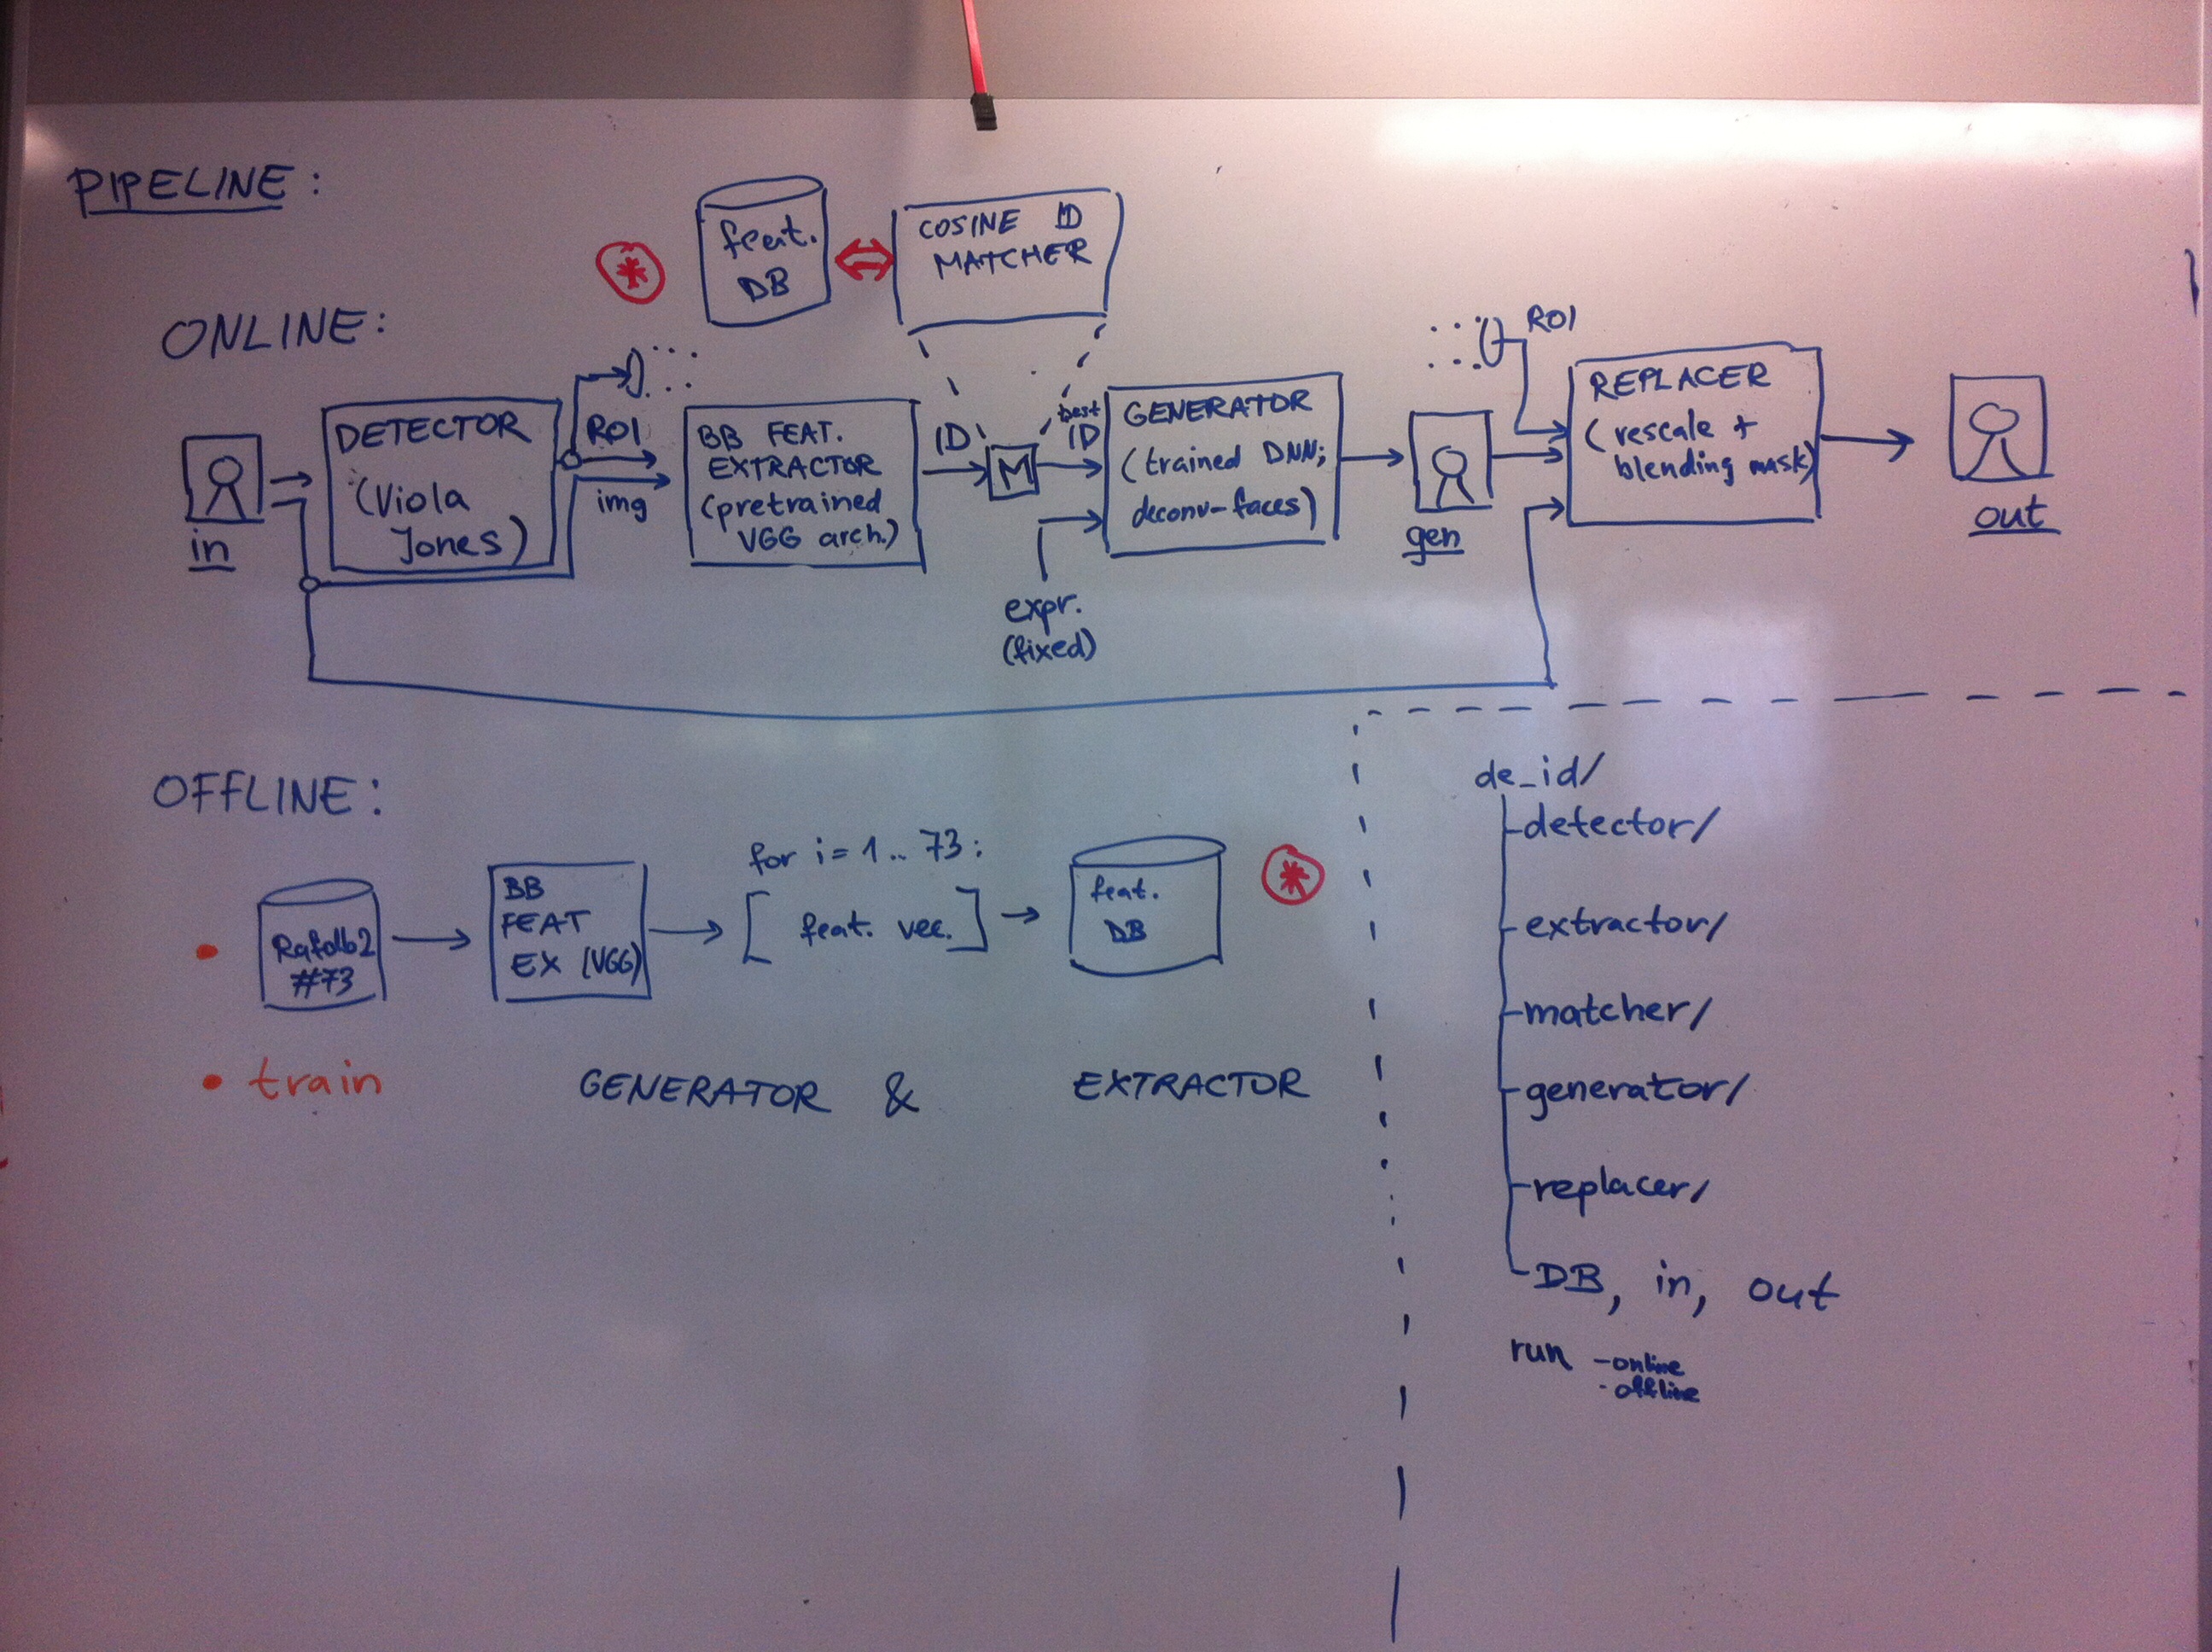 PIPELINE:
ONLINE:
feat.
DB
COSINE ID
MATCHER
in
DETECTOR
(Viola
Jones)
ROI
img
BB FEAT.
EXTRACTOR
(pretrained
VGG arch.)
ID
M
best
ID
expr.
(fixed)
GENERATOR
(trained DNN;
deconv-faces)
gen
ROI
REPLACER
(rescale +
blending mask)
out
OFFLINE:
Rafdb2
#73
BB
FEAT
EX (VGG)
for i=1..73:
[feat. vec.]
feat.
DB
train GENERATOR & EXTRACTOR
de_id/
detector/
extractor/
matcher/
generator/
replacer/
DB, in, out
run -online
-offline